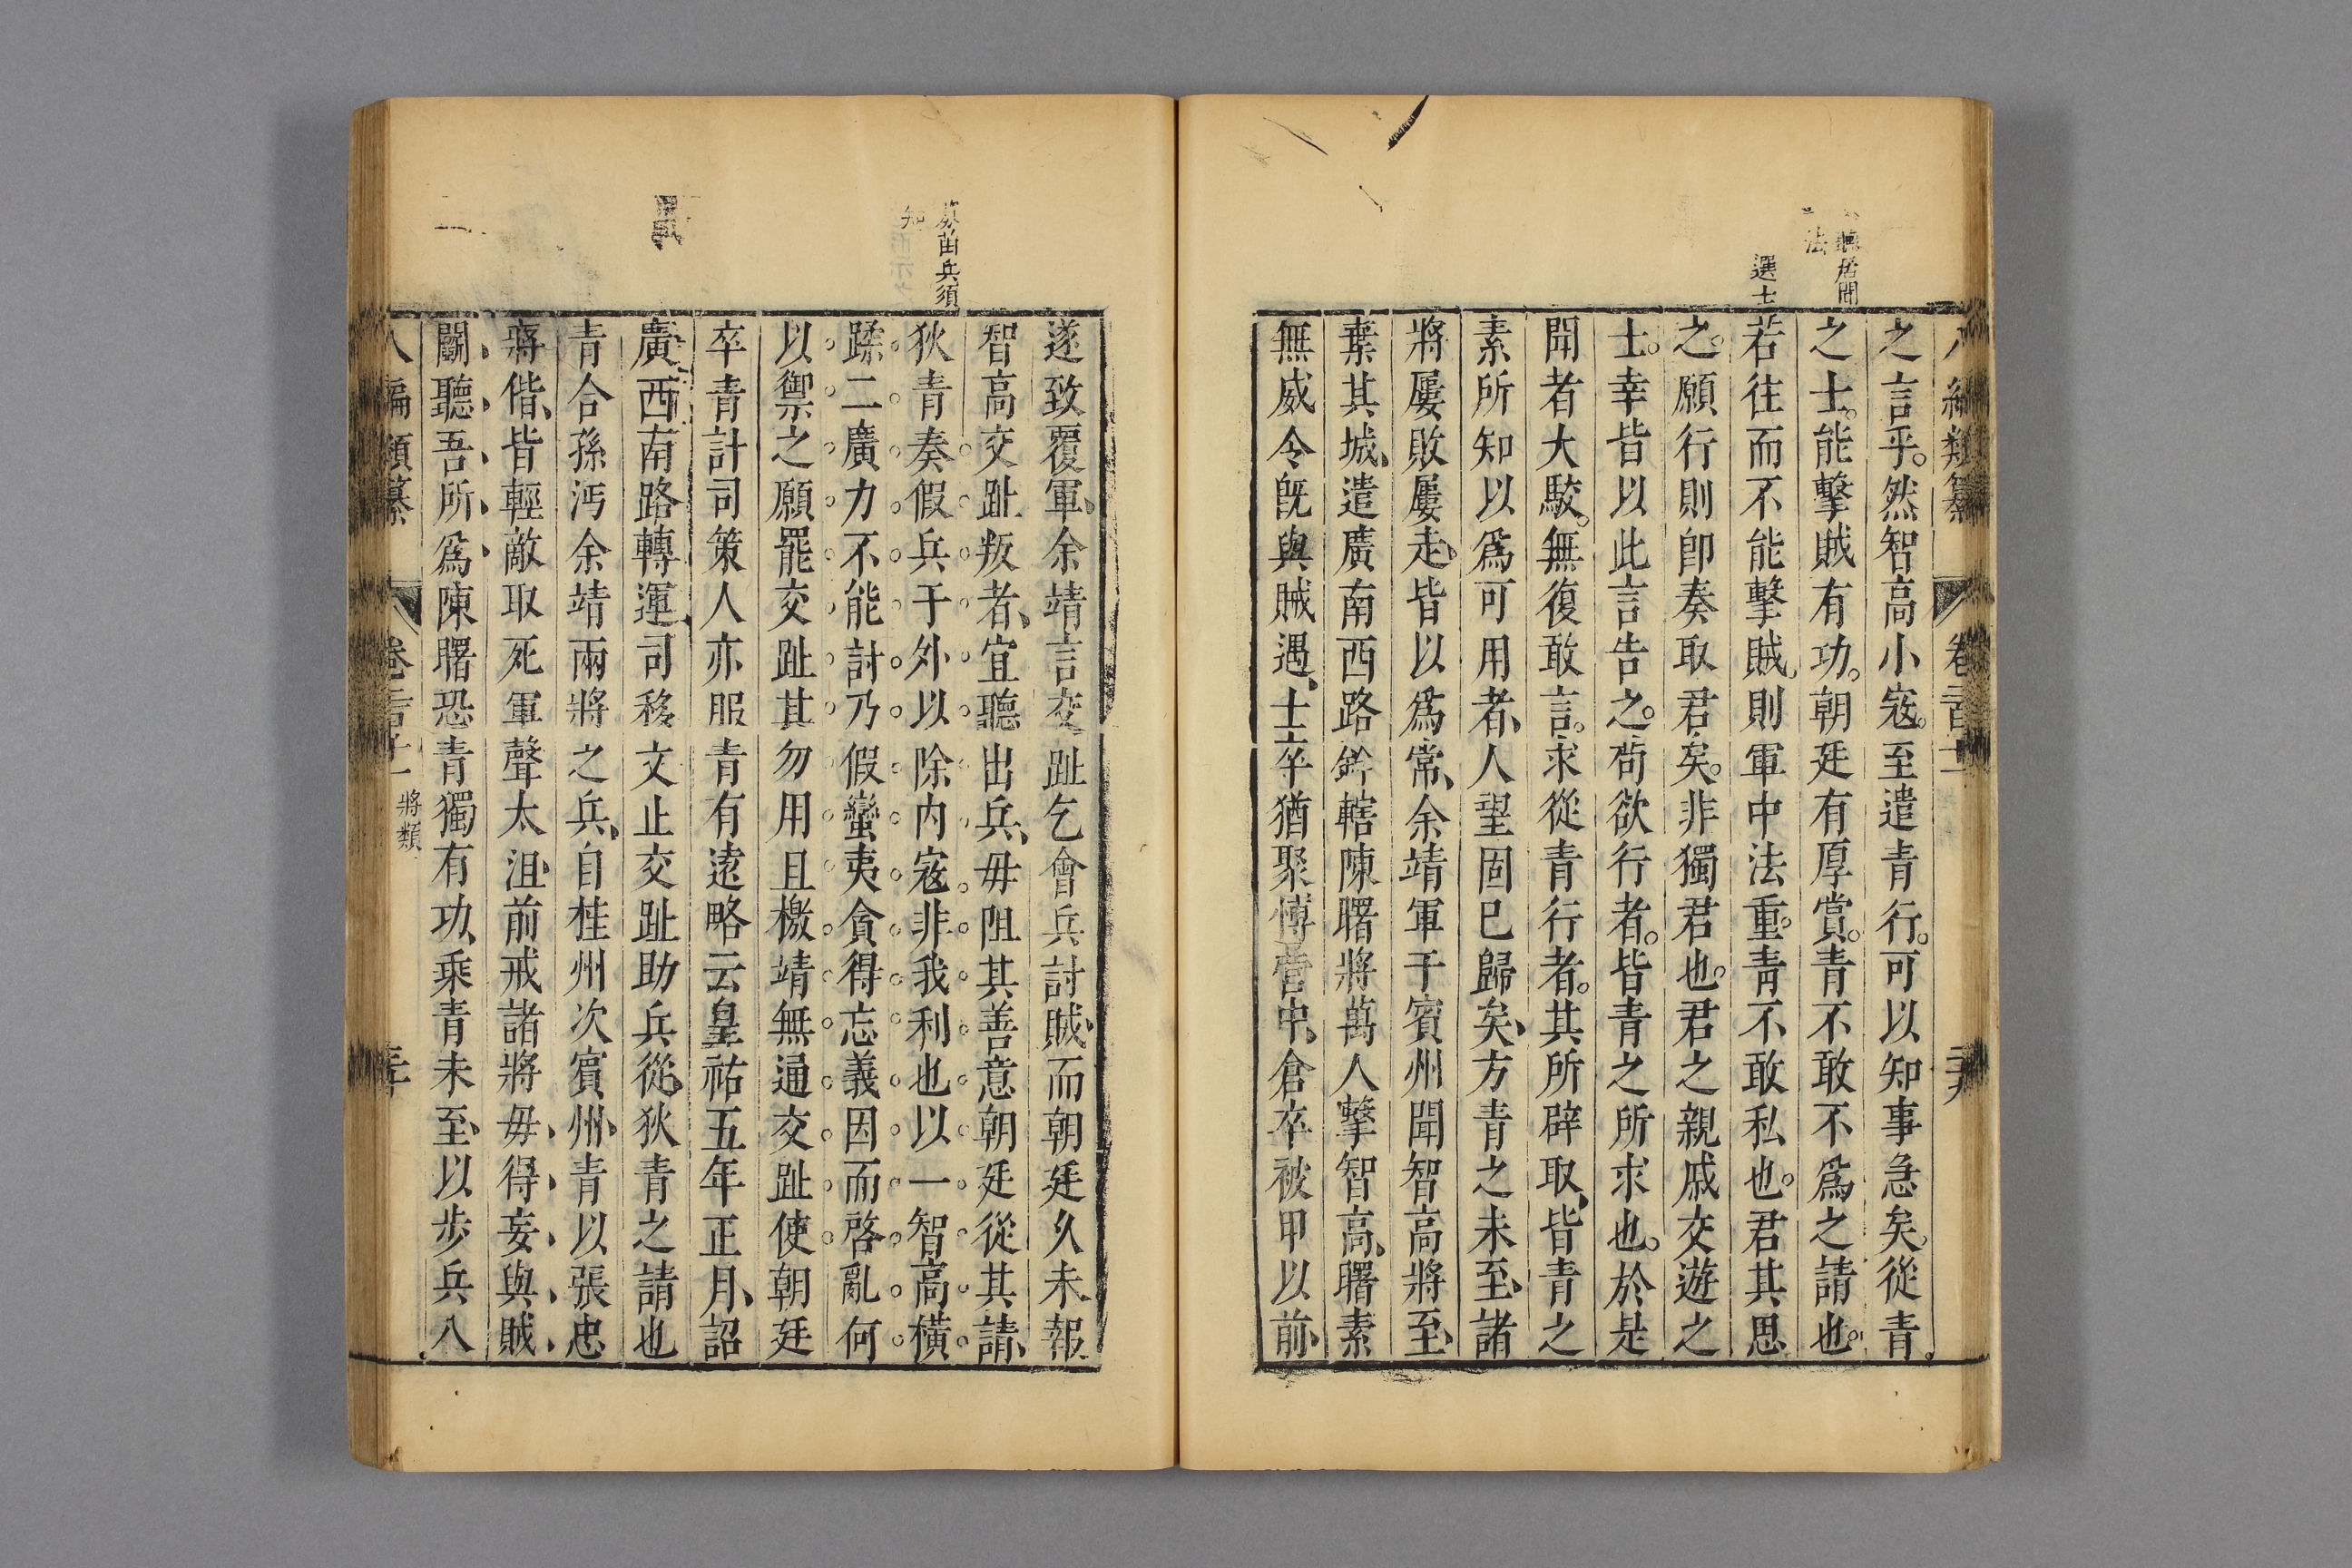 選士
法
居間
之言乎。然智高小寇。至遣青行。可以知事急矣。從青。
之士。能擊賊有功。朝廷有厚賞。青不敢不爲之請也。
若往而不能擊賊。則軍中法重。青不敢私也。君其思
之。願行則卽奏取君矣。非獨君也。君之親戚交遊之
士。幸皆以此言告之。苟欲行者。皆青之所求也。於是
聞者大駭。無復敢言。求從青行者。其所辟取、皆青之
素所知以爲可用者、人望固已歸矣、方青之未至、諸
將屢敗屢走、皆以爲常、余靖軍于賓州聞智高將至、
棄其城、遣廣南西路鈐轄陳曙將萬人擊智高、曙素
無威令旣與賊遇、士卒猶聚博營中、倉卒被甲以前、
苗兵須
遂致覆軍、余靖言交趾乞會兵討賊、而朝廷久未報
智高交趾叛者、宜聽出兵、毋阻其善意朝廷從其請、
狄青奏假兵于外以除内寇非我利也以一智高橫
蹂二廣力不能討乃假蠻夷貪得忘義因而啓亂何
以禦之願罷交趾其勿用且檄靖無通交趾使朝廷
卒青計司策人亦服青有遠略云皇祐五年正月、詔
廣西南路轉運司移文止交趾助兵從狄青之請也
青合孫沔余靖兩將之兵、自桂州次賓州、青以張忠
蔣偕、皆輕敵取死軍聲太沮、前戒諸將毋得妄與賊
鬬聽吾所爲陳曙恐青獨有功、乘青未至、以步兵八
八編類纂
將類